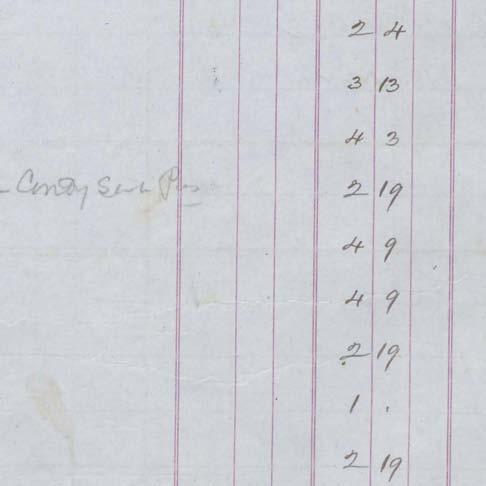 2 4
3 13
4 3
2 19
4 9
4 9
2 19
1 .
2 19